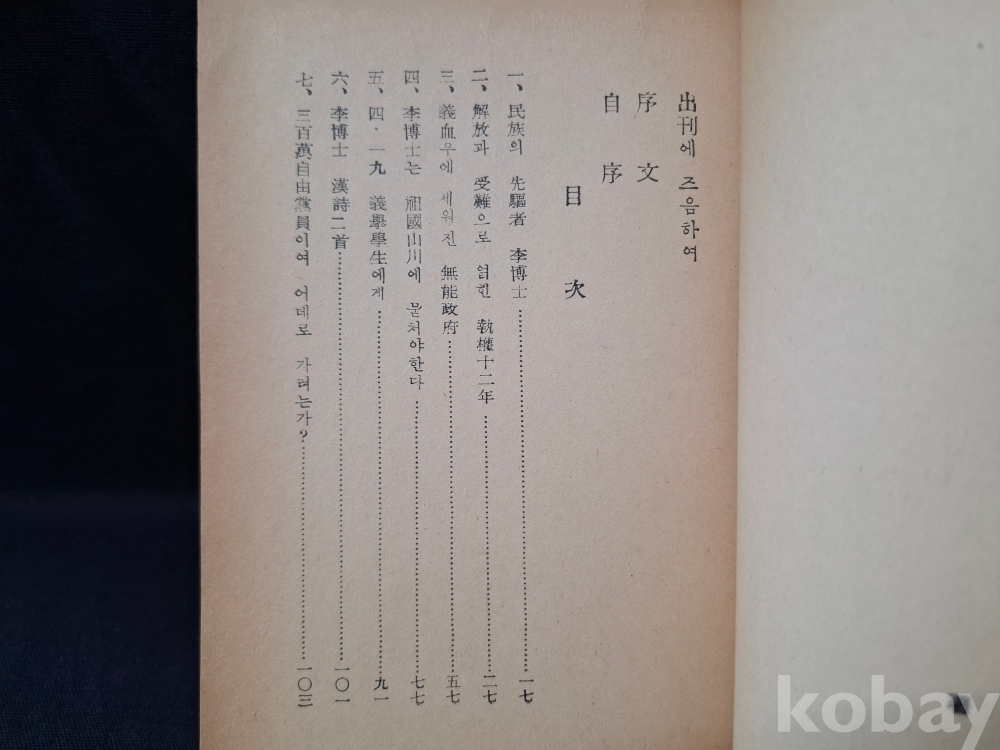 出刊에 즈음하여
序文
自序
目次
一、民族의 先驅者 李博士 一七
二、解放과 受難으로 얽힌 執權十二年 二七
三、義血우에 세워진 無能政府 五七
四、李博士는 祖國山川에 묻처야한다 七七
五、四·一九 義擧學生에게 九一
六、李博士 漢詩二首 一〇一
七、三百萬自由黨員이여 어데로 가려는가? 一〇三
kobay